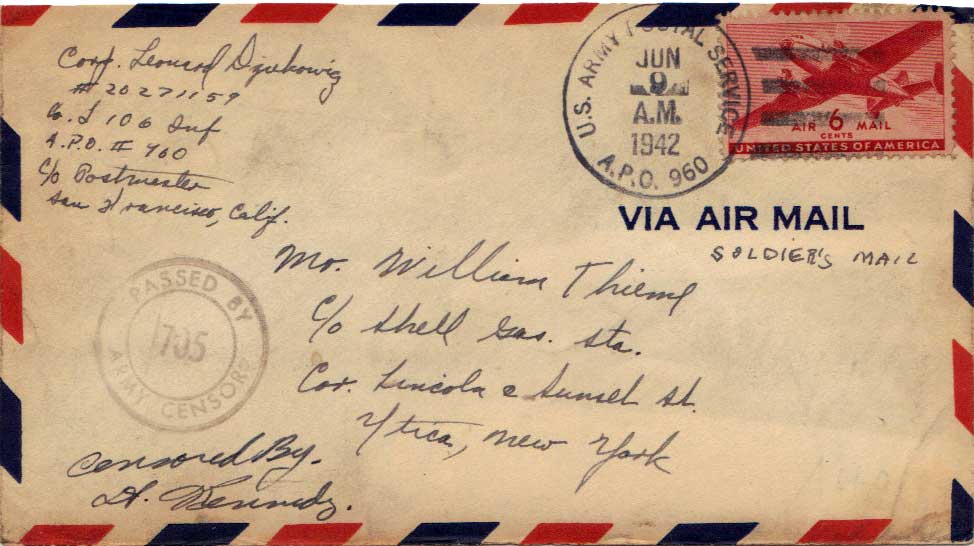 Corp. Leonard Dziekowicz
# 20271159
Co. I 106 Inf
A.P.O. # 960
c/o Postmaster
San Francisco, Calif.
U.S. ARMY POSTAL SERVICE
JUN
9
A.M.
1942
A.P.O. 960
AIR 6 MAIL
CENTS
UNITED STATES OF AMERICA
VIA AIR MAIL
SOLDIER'S MAIL
Mr. William Thieme
c/o Shell Gas. Sta.
Cor. Lincoln & Sunset St.
Utica, New York
PASSED BY
705
ARMY CENSOR
Censored By.
Lt. Kennedy.